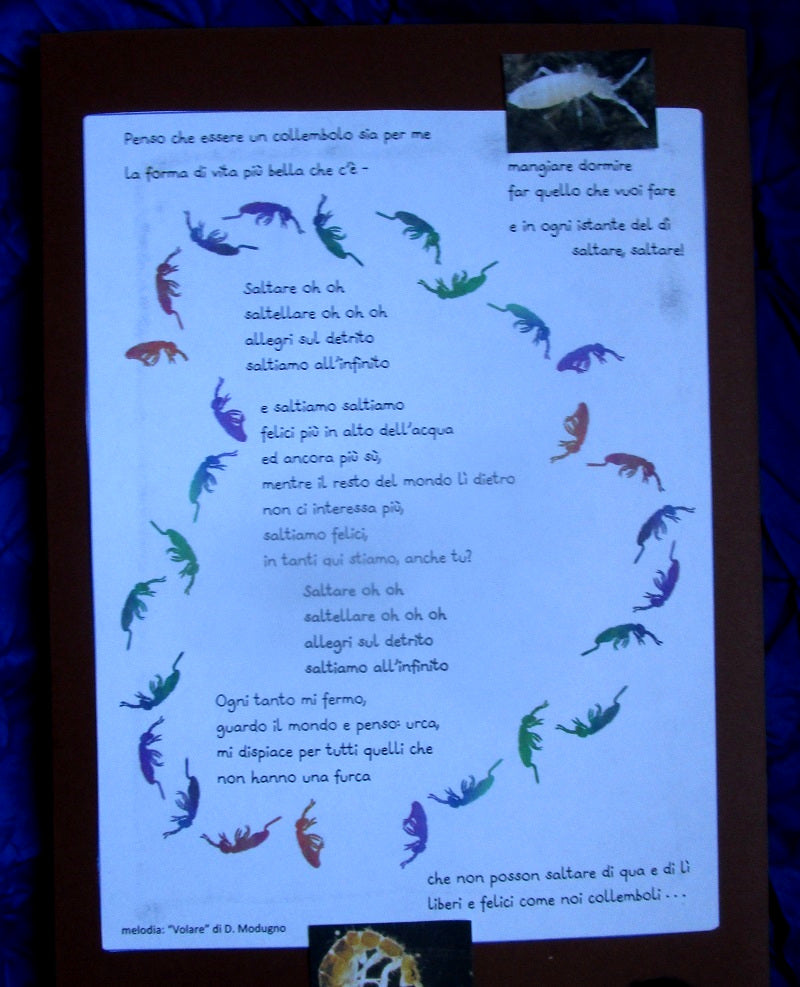 Penso che essere un collembolo sia per me
la forma di vita più bella che c'è -
mangiare dormire
far quello che vuoi fare
e in ogni istante del dì
saltare, saltare!
Saltare oh oh
saltellare oh oh oh
allegri sul detrito
saltiamo all'infinito
e saltiamo saltiamo
felici più in alto dell'acqua
ed ancora più sù,
mentre il resto del mondo lì dietro
non ci interessa più,
saltiamo felici,
in tanti qui stiamo, anche tu?
Saltare oh oh
saltellare oh oh oh
allegri sul detrito
saltiamo all'infinito
Ogni tanto mi fermo,
guardo il mondo e penso: urca,
mi dispiace per tutti quelli che
non hanno una furca
che non posson saltare di qua e di lì
liberi e felici come noi collemboli . . .
melodia: "Volare" di D. Modugno